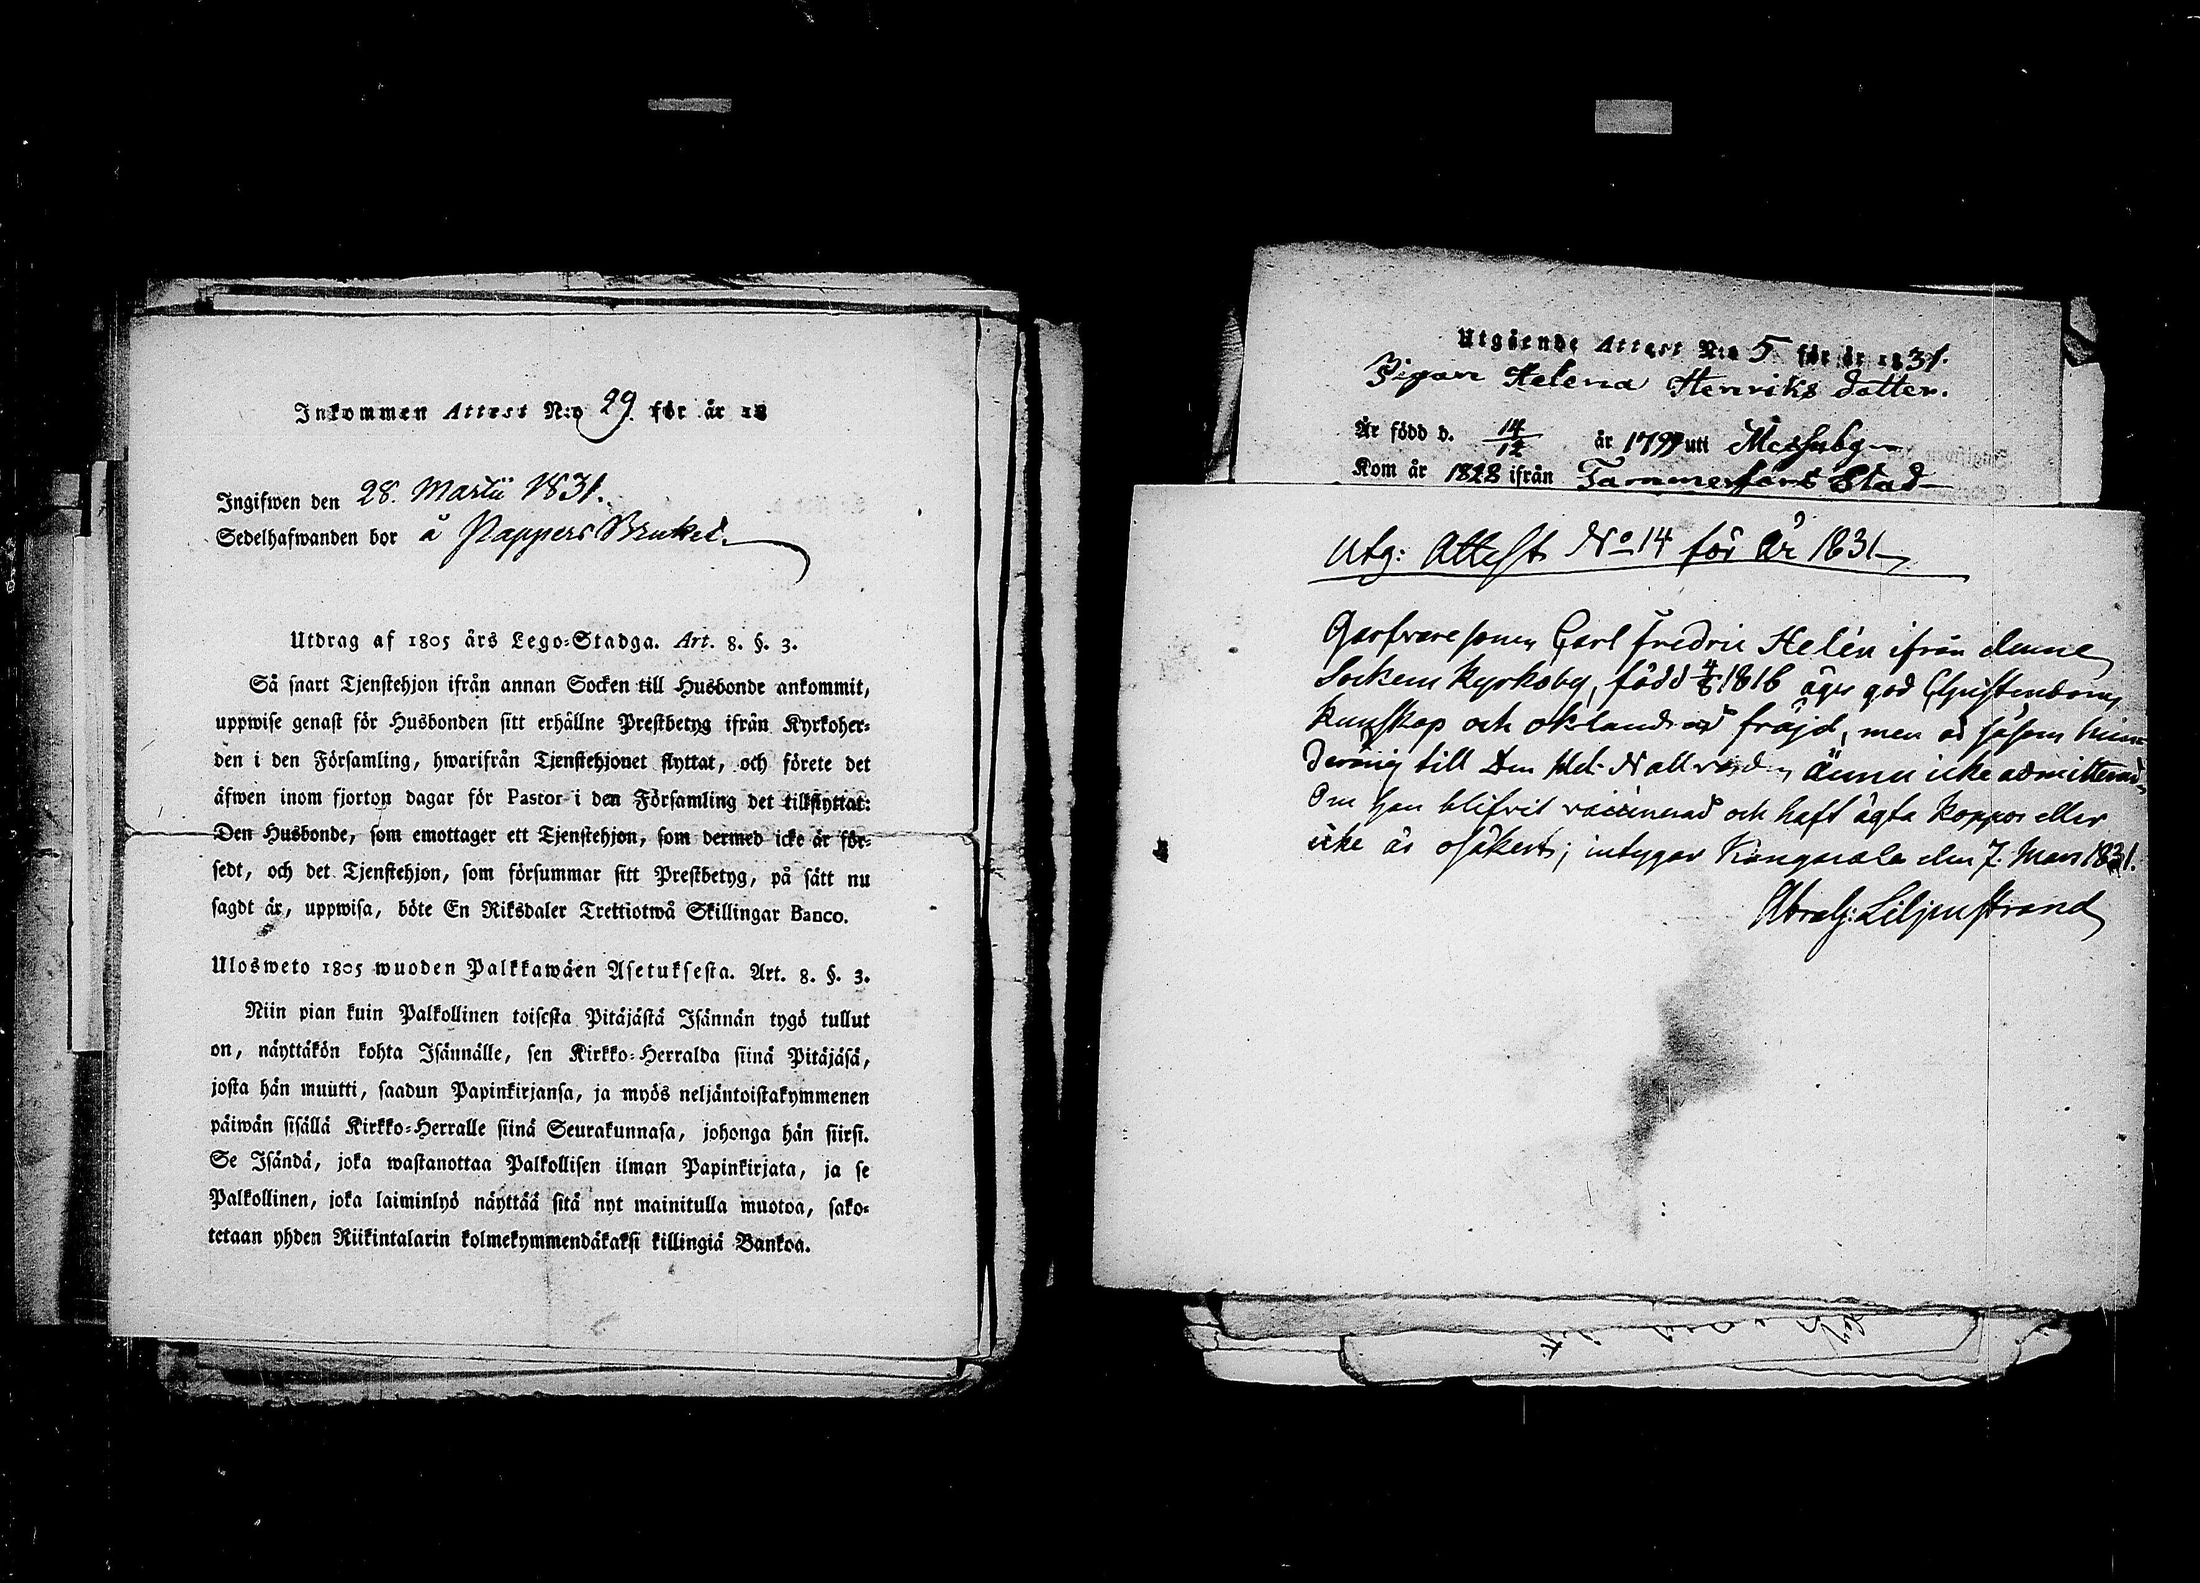 Inkommen Attest N:o 29 för år 18
Ingifwen den 28. Martii 1831.
Sedelhafwanden bor å Pappers Bruket.
Utdrag af 1805 års Lego-Stadga. Art. 8. §. 3.
Så snart Tjenstehjon ifrån annan Socken till Husbonde ankommit,
uppwise genast för Husbonden sitt erhållne Prestbetyg ifrån Kyrkoher-
den i den Församling, hwarifrån Tjenstehjonet flyttat, och förete det
äfwen inom fjorton dagar för Pastor i den Församling det tillflyttat:
Den Husbonde, som emottager ett Tjenstehjon, som dermed icke är för-
sedt, och det Tjenstehjon, som försummar sitt Prestbetyg, på sätt nu
sagdt är, uppwisa, böte En Riksdaler Trettiotwå Skillingar Banco.
Ulosweto 1805 wuoden Palkkawäen Asetuksesta. Art. 8. §. 3.
Niin pian kuin Palkollinen toisesta Pitäjästä Isännän tygö tullut
on, näyttäkön kohta Isännälle, sen Kirkko-Herralda siinä Pitäjäsä,
josta hän muutti, saadun Papinkirjansa, ja myös neljäntoistakymmenen
päiwän sisällä Kirkko-Herralle siinä Seurakunnasa, johonga hän siirsi.
Se Isändä, joka wastanottaa Palkollisen ilman Papinkirjata, ja se
Palkollinen, joka laiminlyö näyttää sitä nyt mainitulla muotoa, sako-
tetaan yhden Riikintalarin kolmekymmendäkaksi killingiä Bankoa.
Utgående Attest N:o 5 för år 1831.
Pigan Helena Henriks dotter.
År född d. 14/12 år 1799 uti Messuby
Kom år 1828 ifrån Tammerfors Stad
Utg: Attest No 14 för År 1831
Garfvaresonen Carl Fredric Helén ifrån denne
Sockens Kyrkoby, född 4/6 1816 äger god Christendoms
kunskap och oklandrad fräjd, men är såsom minn
derårig till Den Hel. Nattvard ännu icke admitterad,
Om han blifvit vaccinerad och haft ägta koppor eller
icke är osäkert; intygar Kangasala den 7. Mars 1831.
Abrah: Liljenstrand